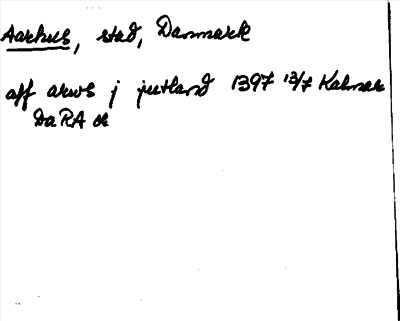 Aarhus, stad, Danmark
aff arws j jutland 1397 13/7 Kalmar
DaRA or